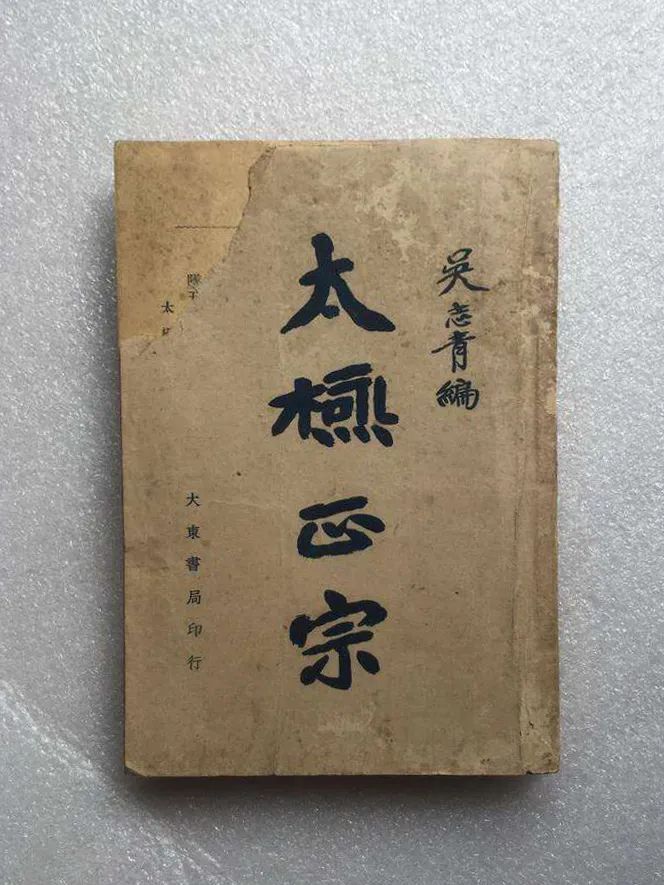 吳志青編
太極正宗
大東書局印行
太